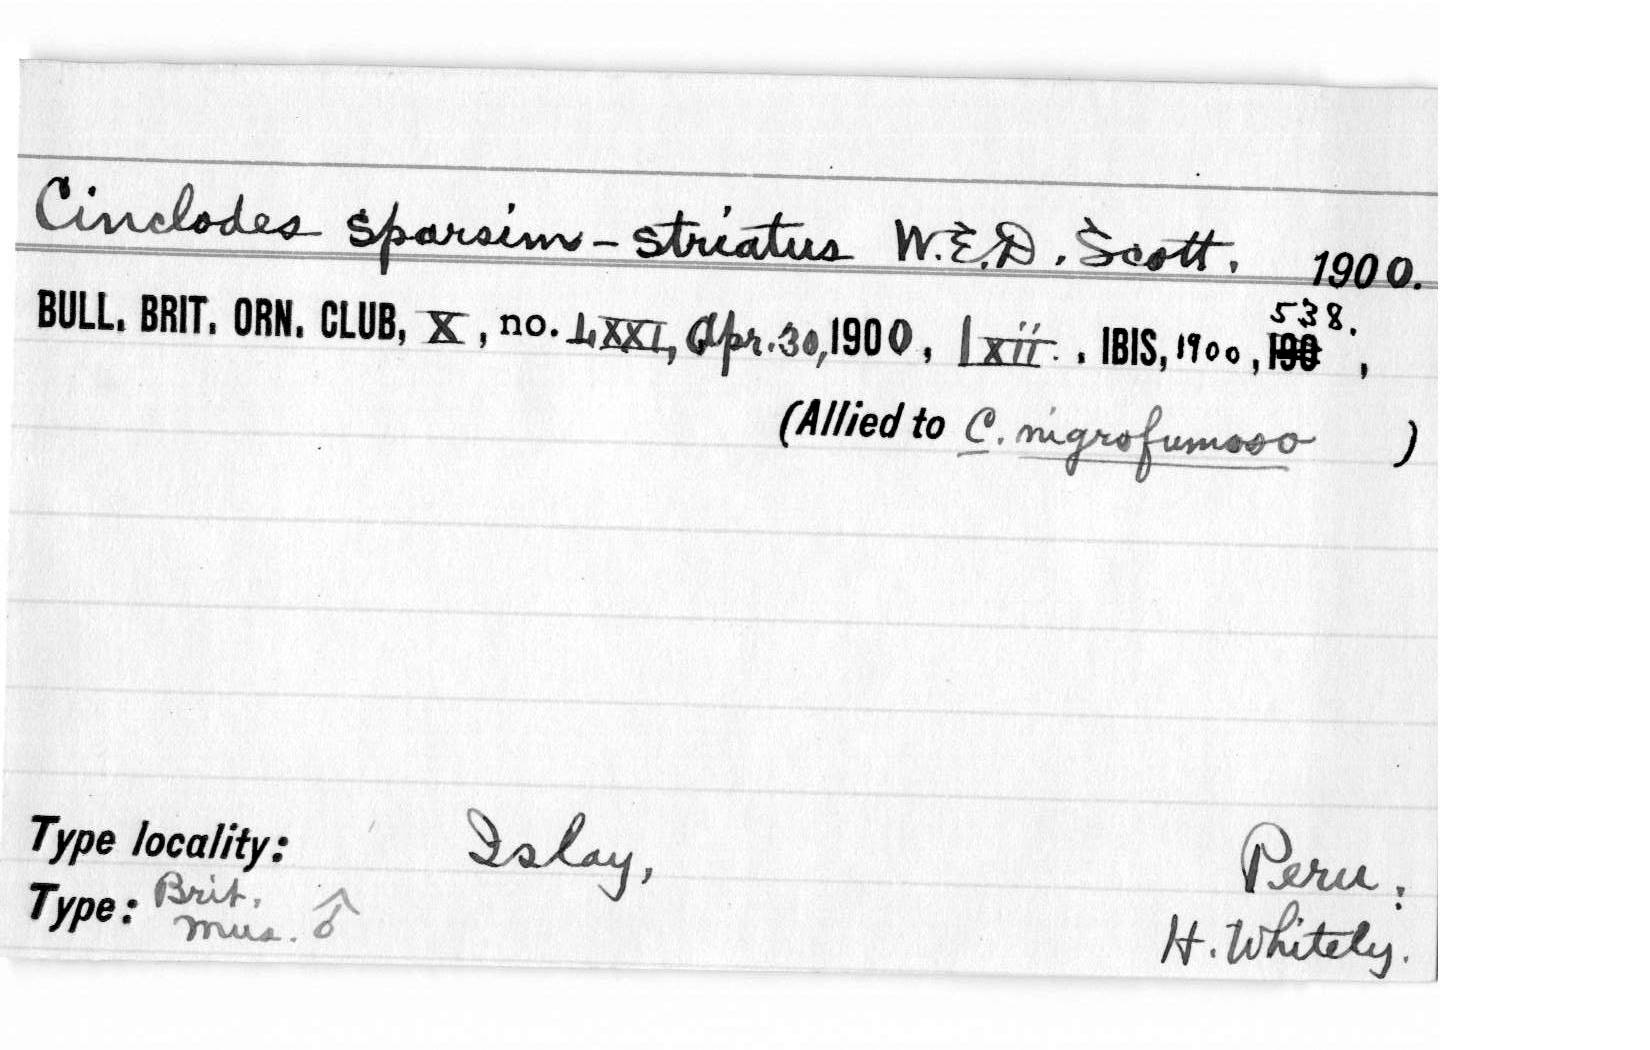 Cinclodes sparsim-striatus W.E.D. Scott. 1900.
538.
BULL. BRIT. ORN. CLUB, X, no. LXXI, Apr. 30, 1900, lxii. . IBIS, 1900, 190 ,
(Allied to C. nigrofumoso )
Type locality: Islay, Peru.
Type: Brit. Mus. ♂ H. Whitely.